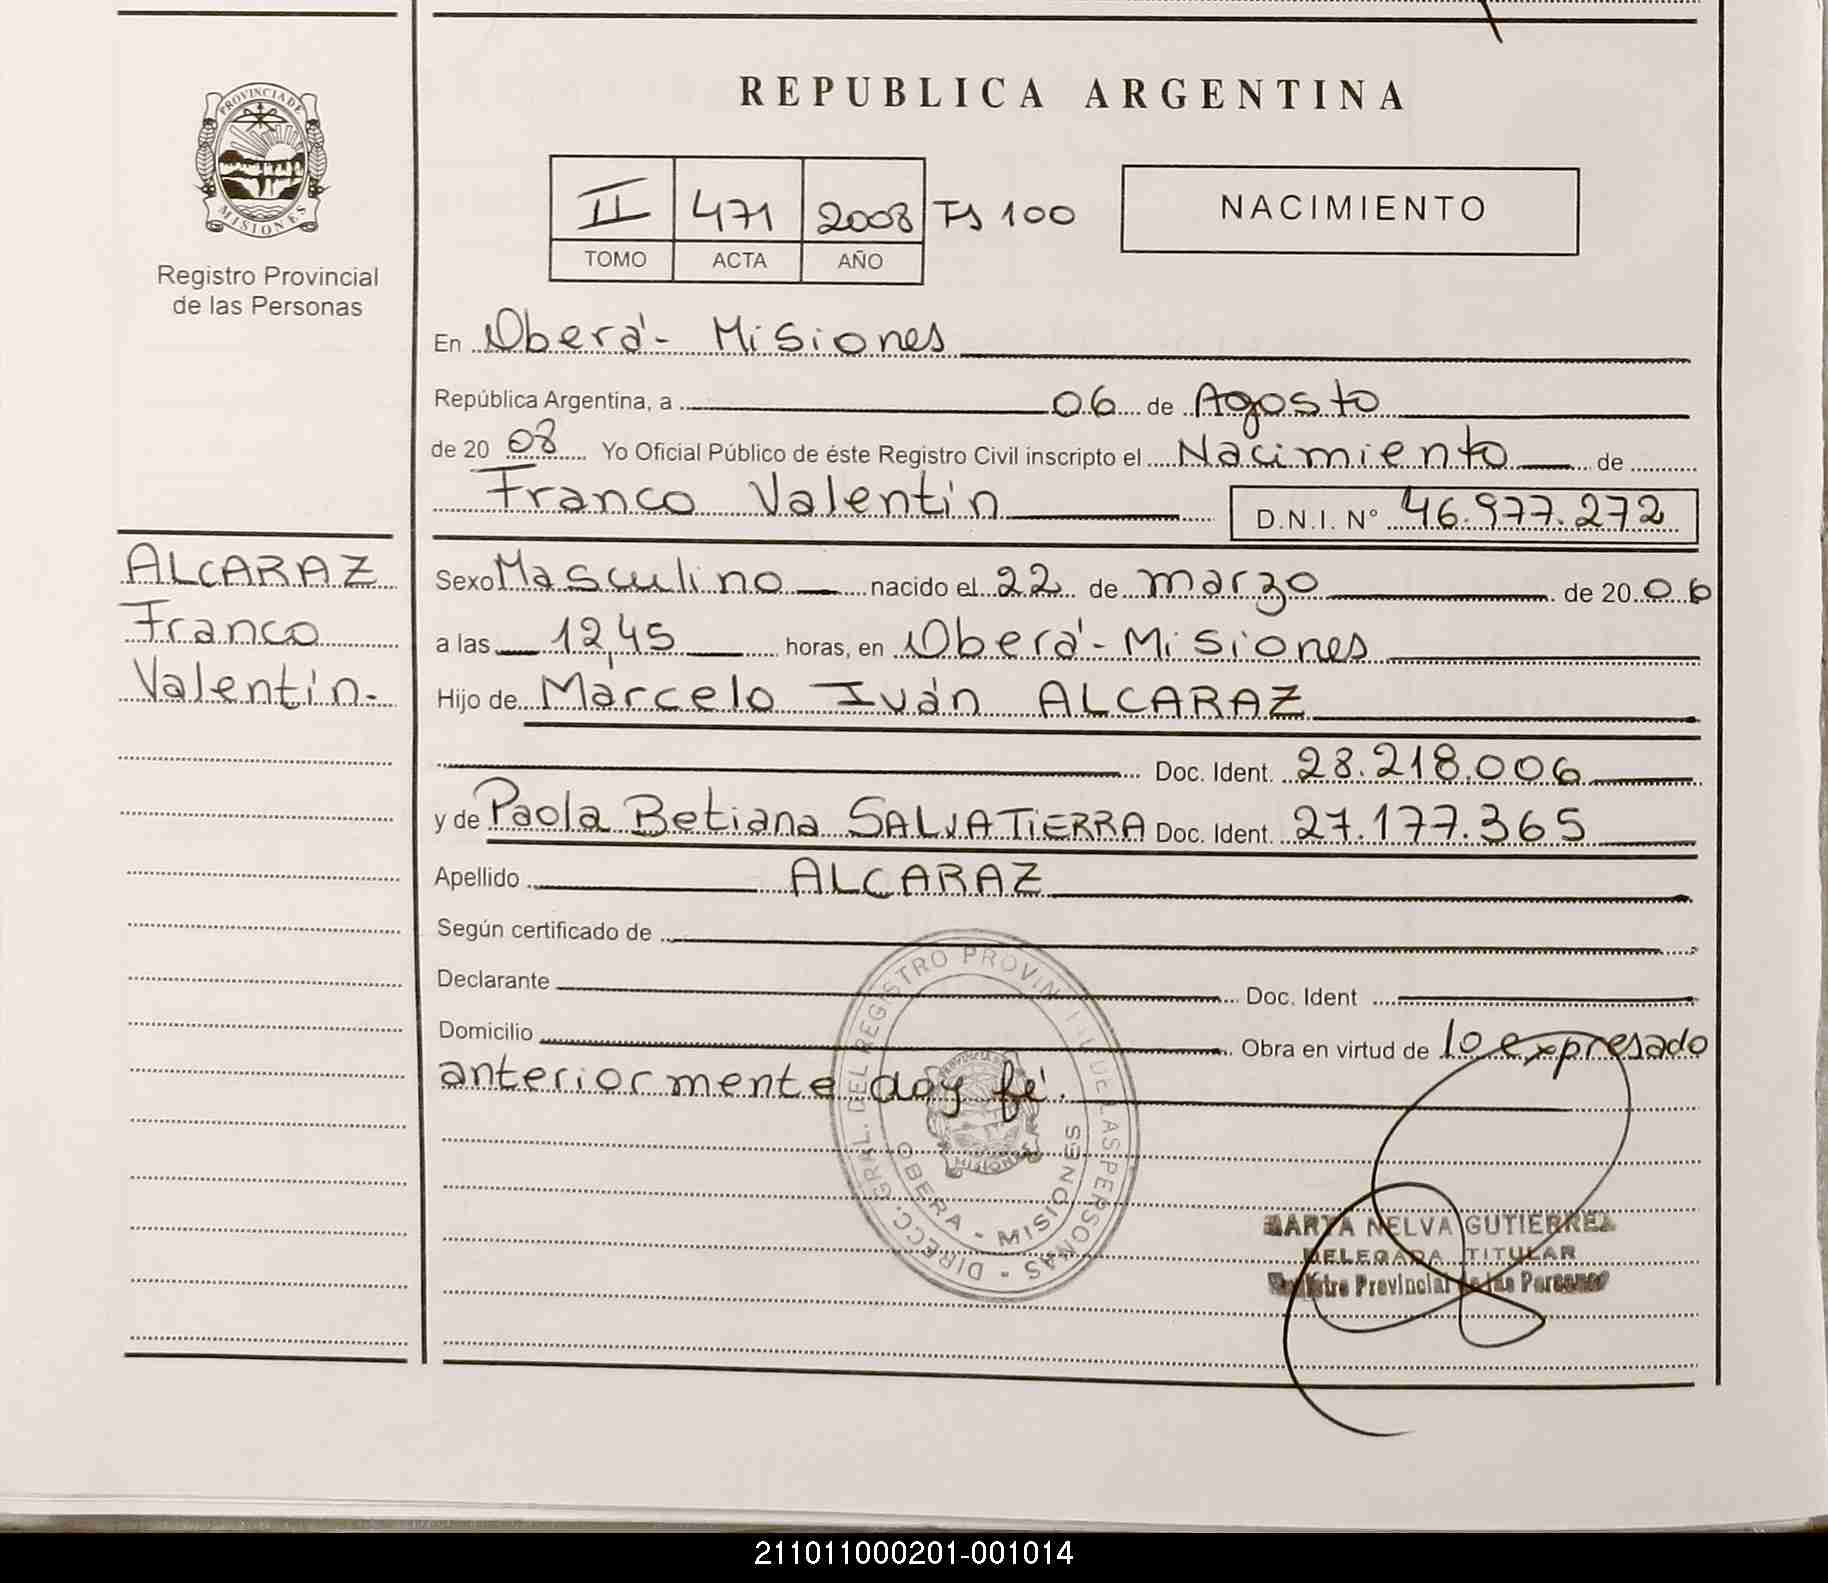 REPUBLICA ARGENTINA
PROVINCIA DE
MISIONES
Registro Provincial
de las Personas
II 471 2008 Fs 100
TOMO ACTA AÑO
NACIMIENTO
En Oberá - Misiones
República Argentina, a 06 de Agosto
de 20 08 Yo Oficial Público de éste Registro Civil inscripto el Nacimiento de
Franco Valentín D.N.I. Nº 46.977.272
ALCARAZ
Franco
Valentín.-
Sexo Masculino nacido el 22 de marzo de 20 06
a las 12,45 horas, en Oberá - Misiones
Hijo de Marcelo Iván ALCARAZ
Doc. Ident. 28.218.006
y de Paola Betiana SALVATIERRA Doc. Ident. 27.177.365
Apellido ALCARAZ
Según certificado de
Declarante Doc. Ident
Domicilio Obra en virtud de lo expresado
anteriormente doy fé.
DIRECC. GRAL. DEL REGISTRO PROVINCIAL DE LAS PERSONAS
MISIONES
OBERA - MISIONES
MARTA NELVA GUTIERREZ
DELEGADA TITULAR
Registro Provincial de las Personas
211011000201-001014